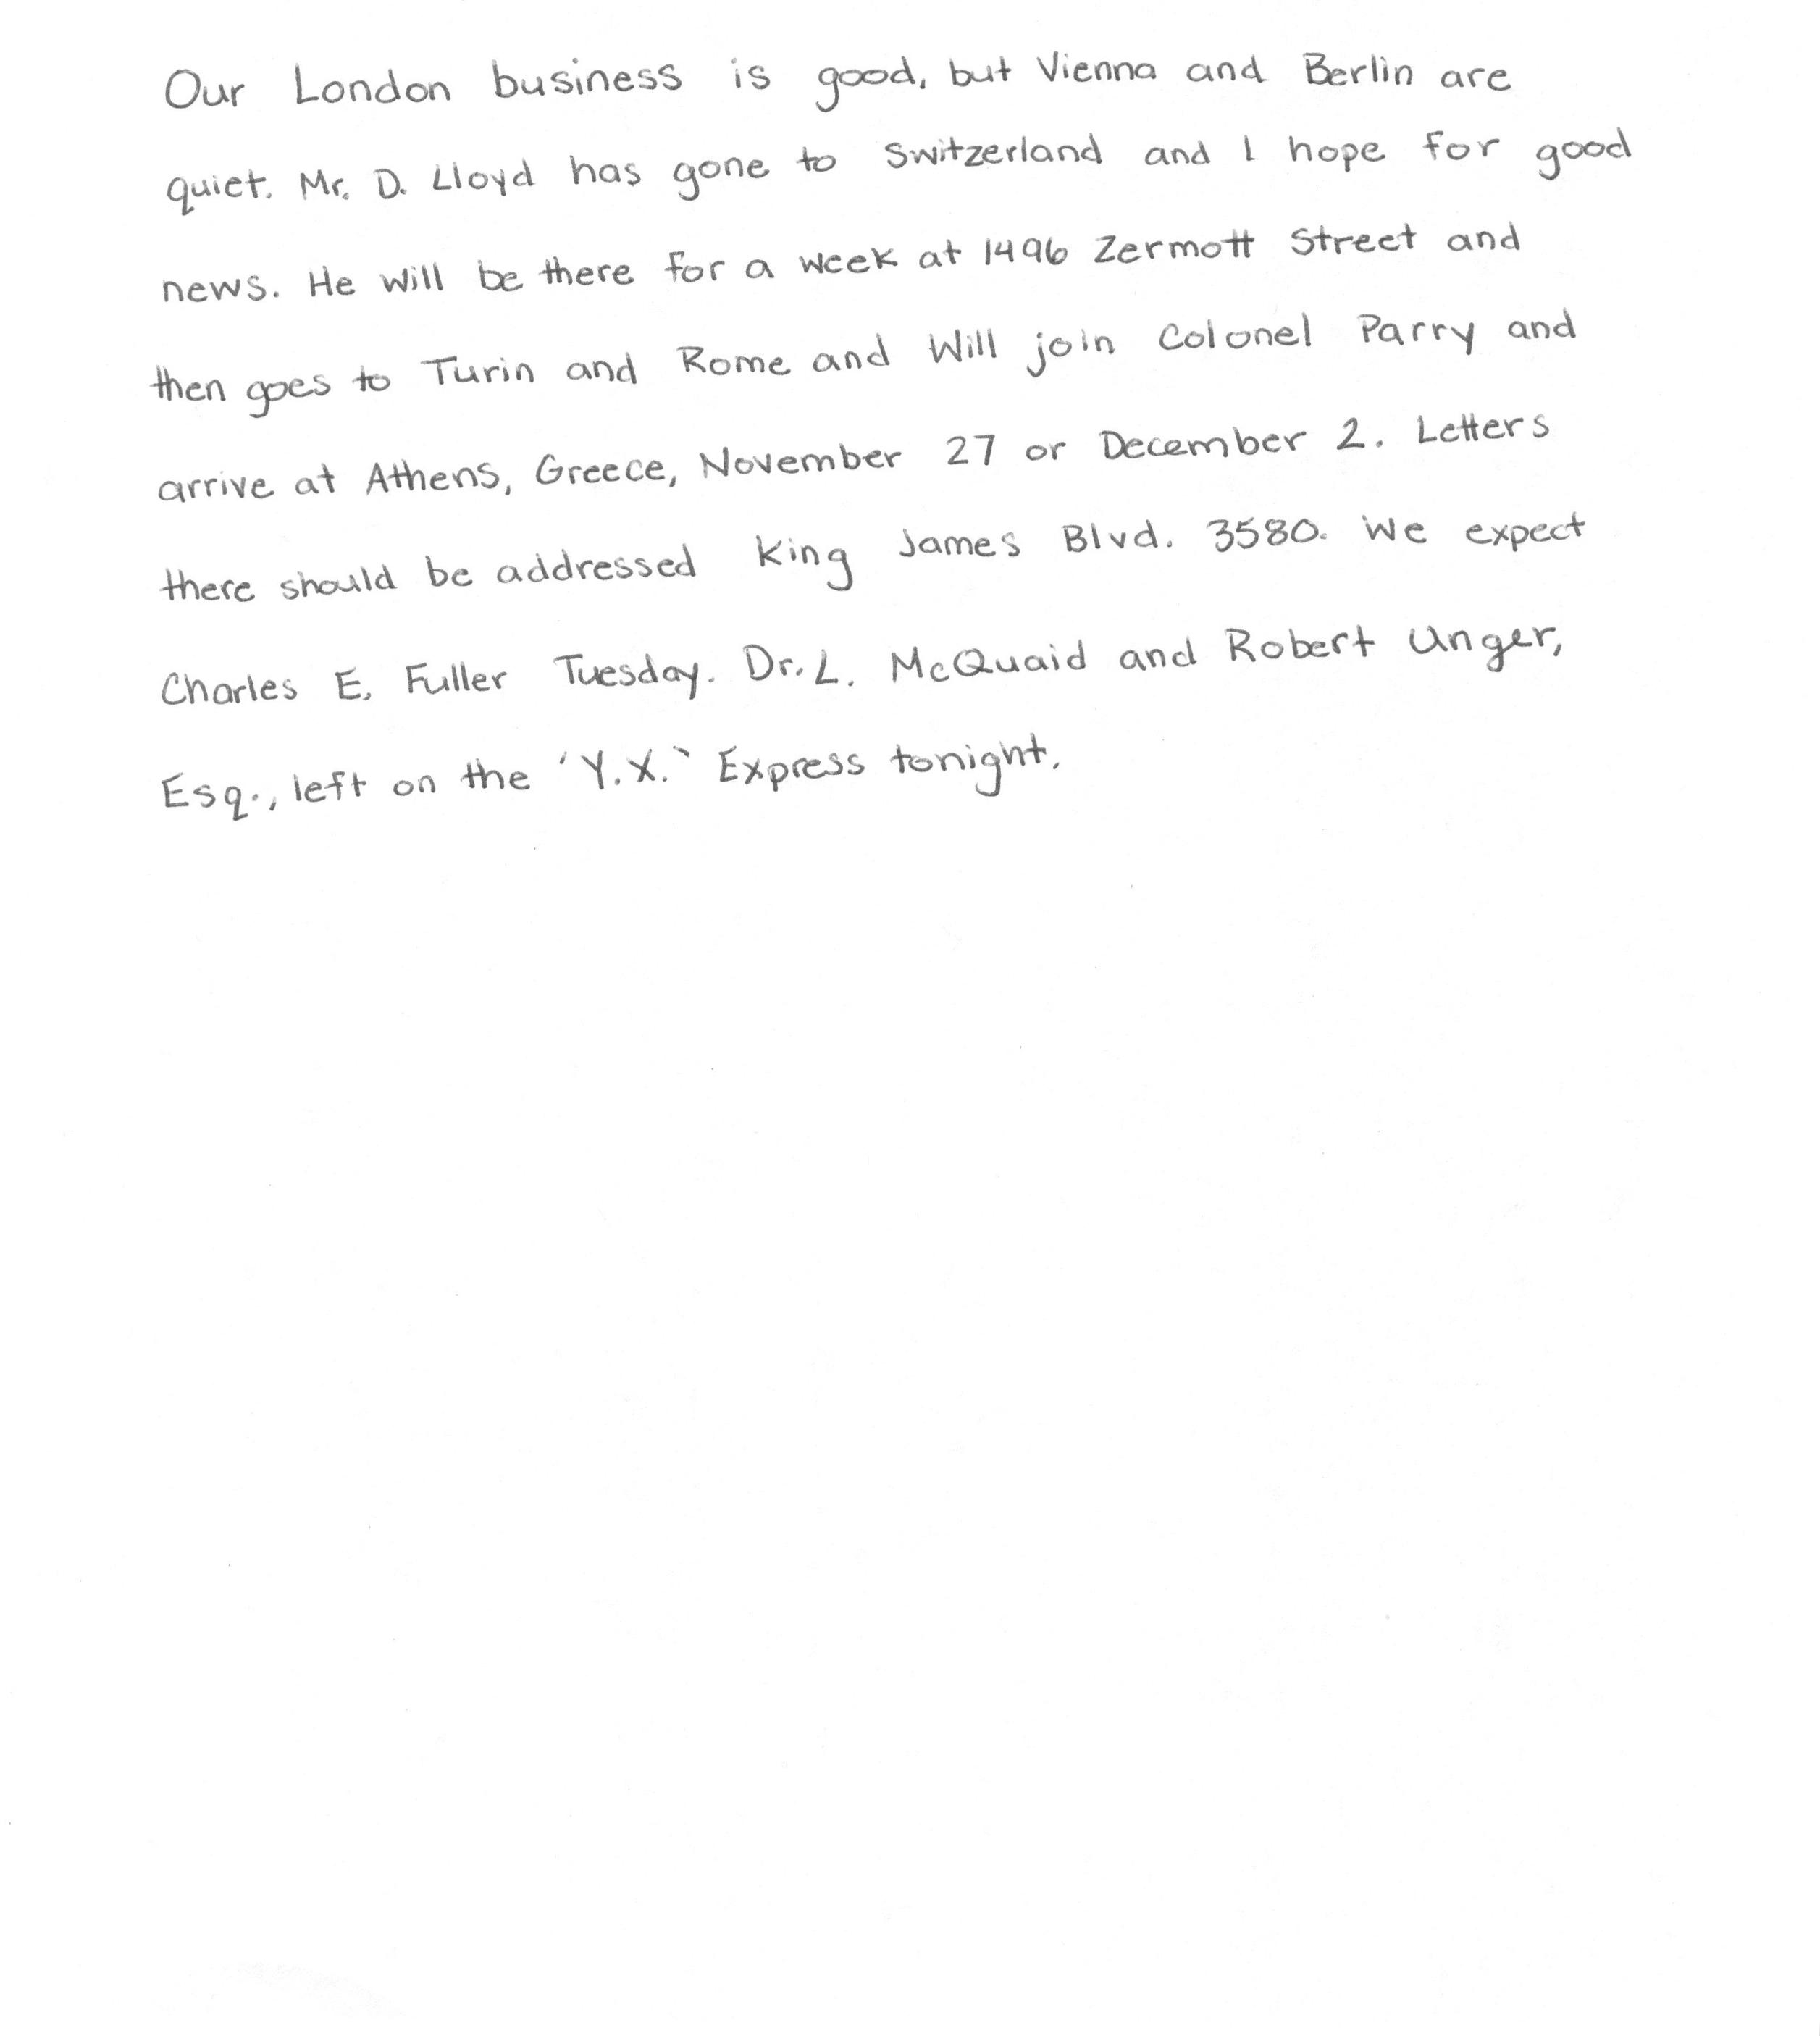 Our London business is good, but Vienna and Berlin are
quiet. Mr. D. Lloyd has gone to Switzerland and I hope for good
news. He will be there for a week at 1496 Zermott Street and
then goes to Turin and Rome and Will join Colonel Parry and
arrive at Athens, Greece, November 27 or December 2. Letters
there should be addressed King James Blvd. 3580. We expect
Charles E. Fuller Tuesday. Dr. L. McQuaid and Robert Unger,
Esq., left on the 'Y.X.` Express tonight.